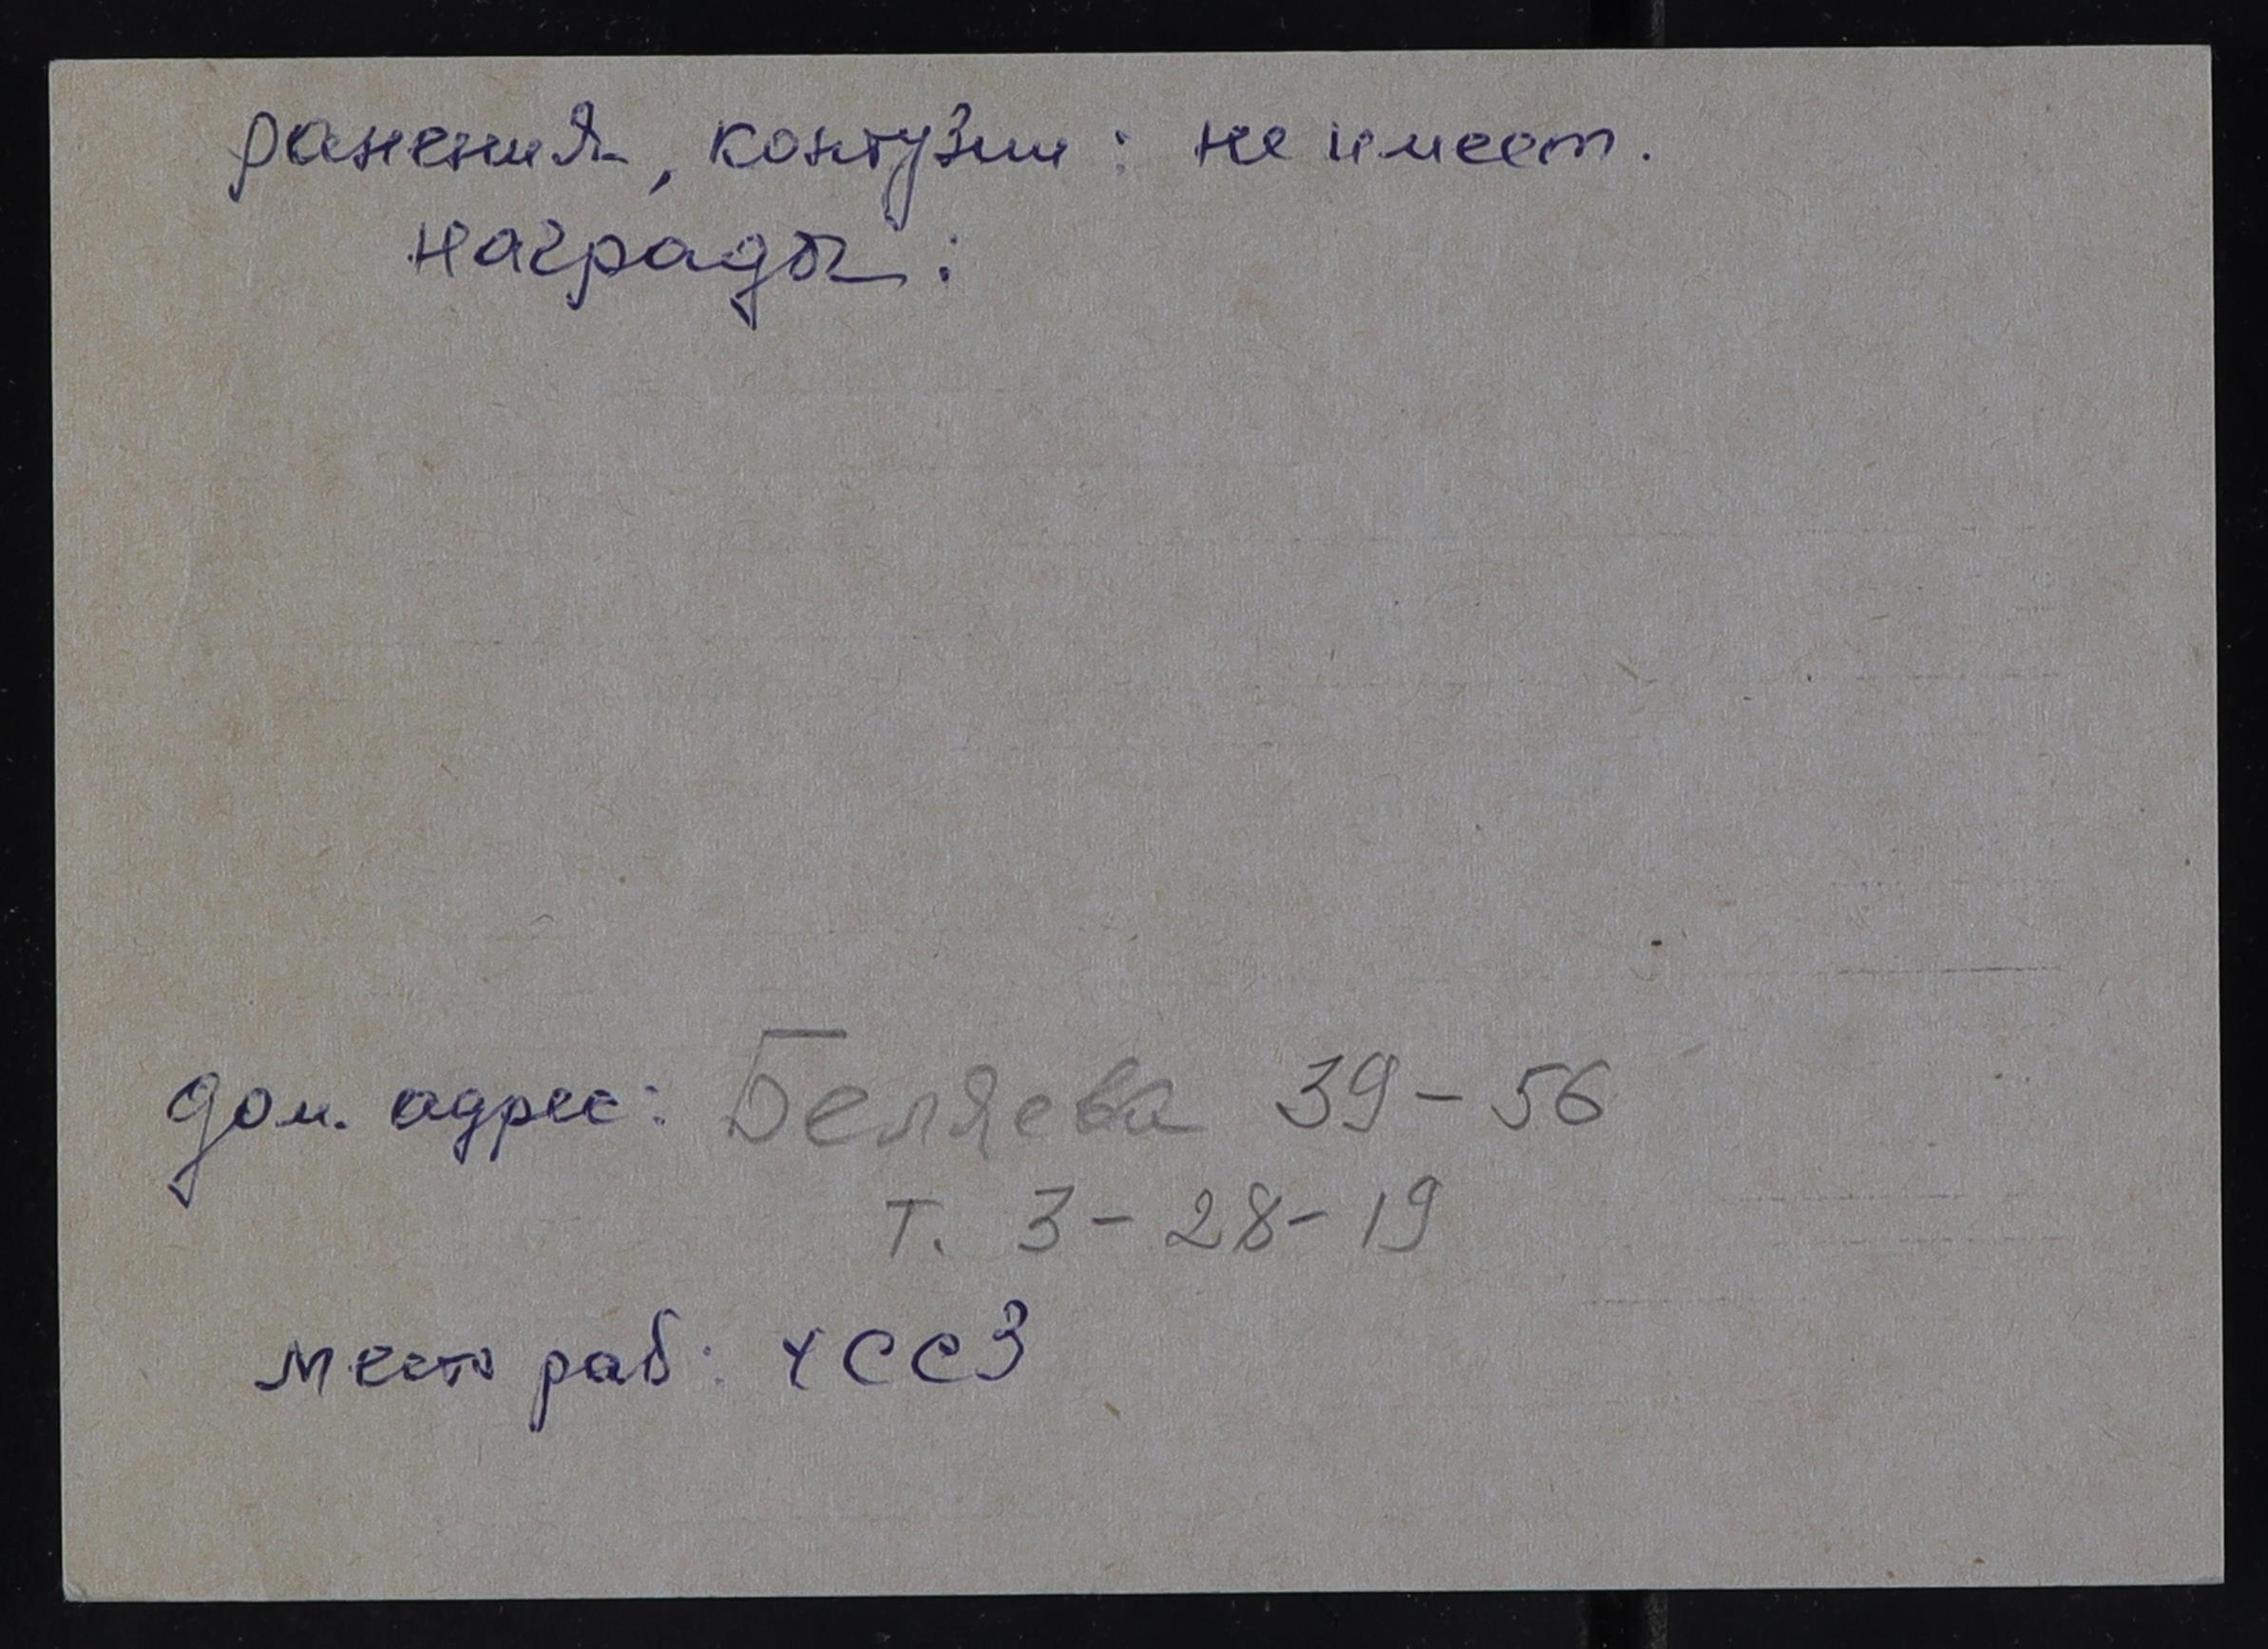 ранения, контузии: не имеет.
награды:
дом. адрес: Беляева 39-56
т. 3-28-19
место раб: ЧССЗ